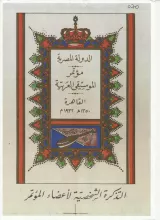 الدولة المصرية
مؤتمر
الموسيقى العربية
القاهرة
التذكرة الشخصية لأعضاء المؤتمر